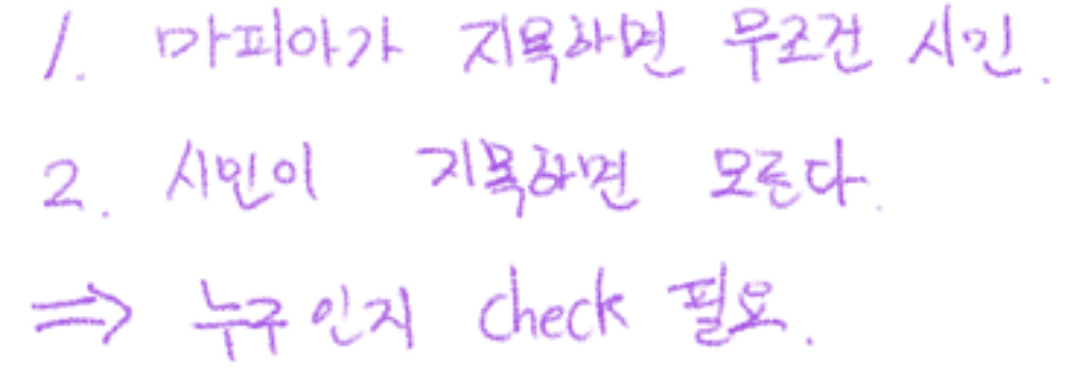 1. 마피아가 지목하면 무조건 시민.
2. 시민이 지목하면 모른다.
⇒ 누구인지 check 필요.